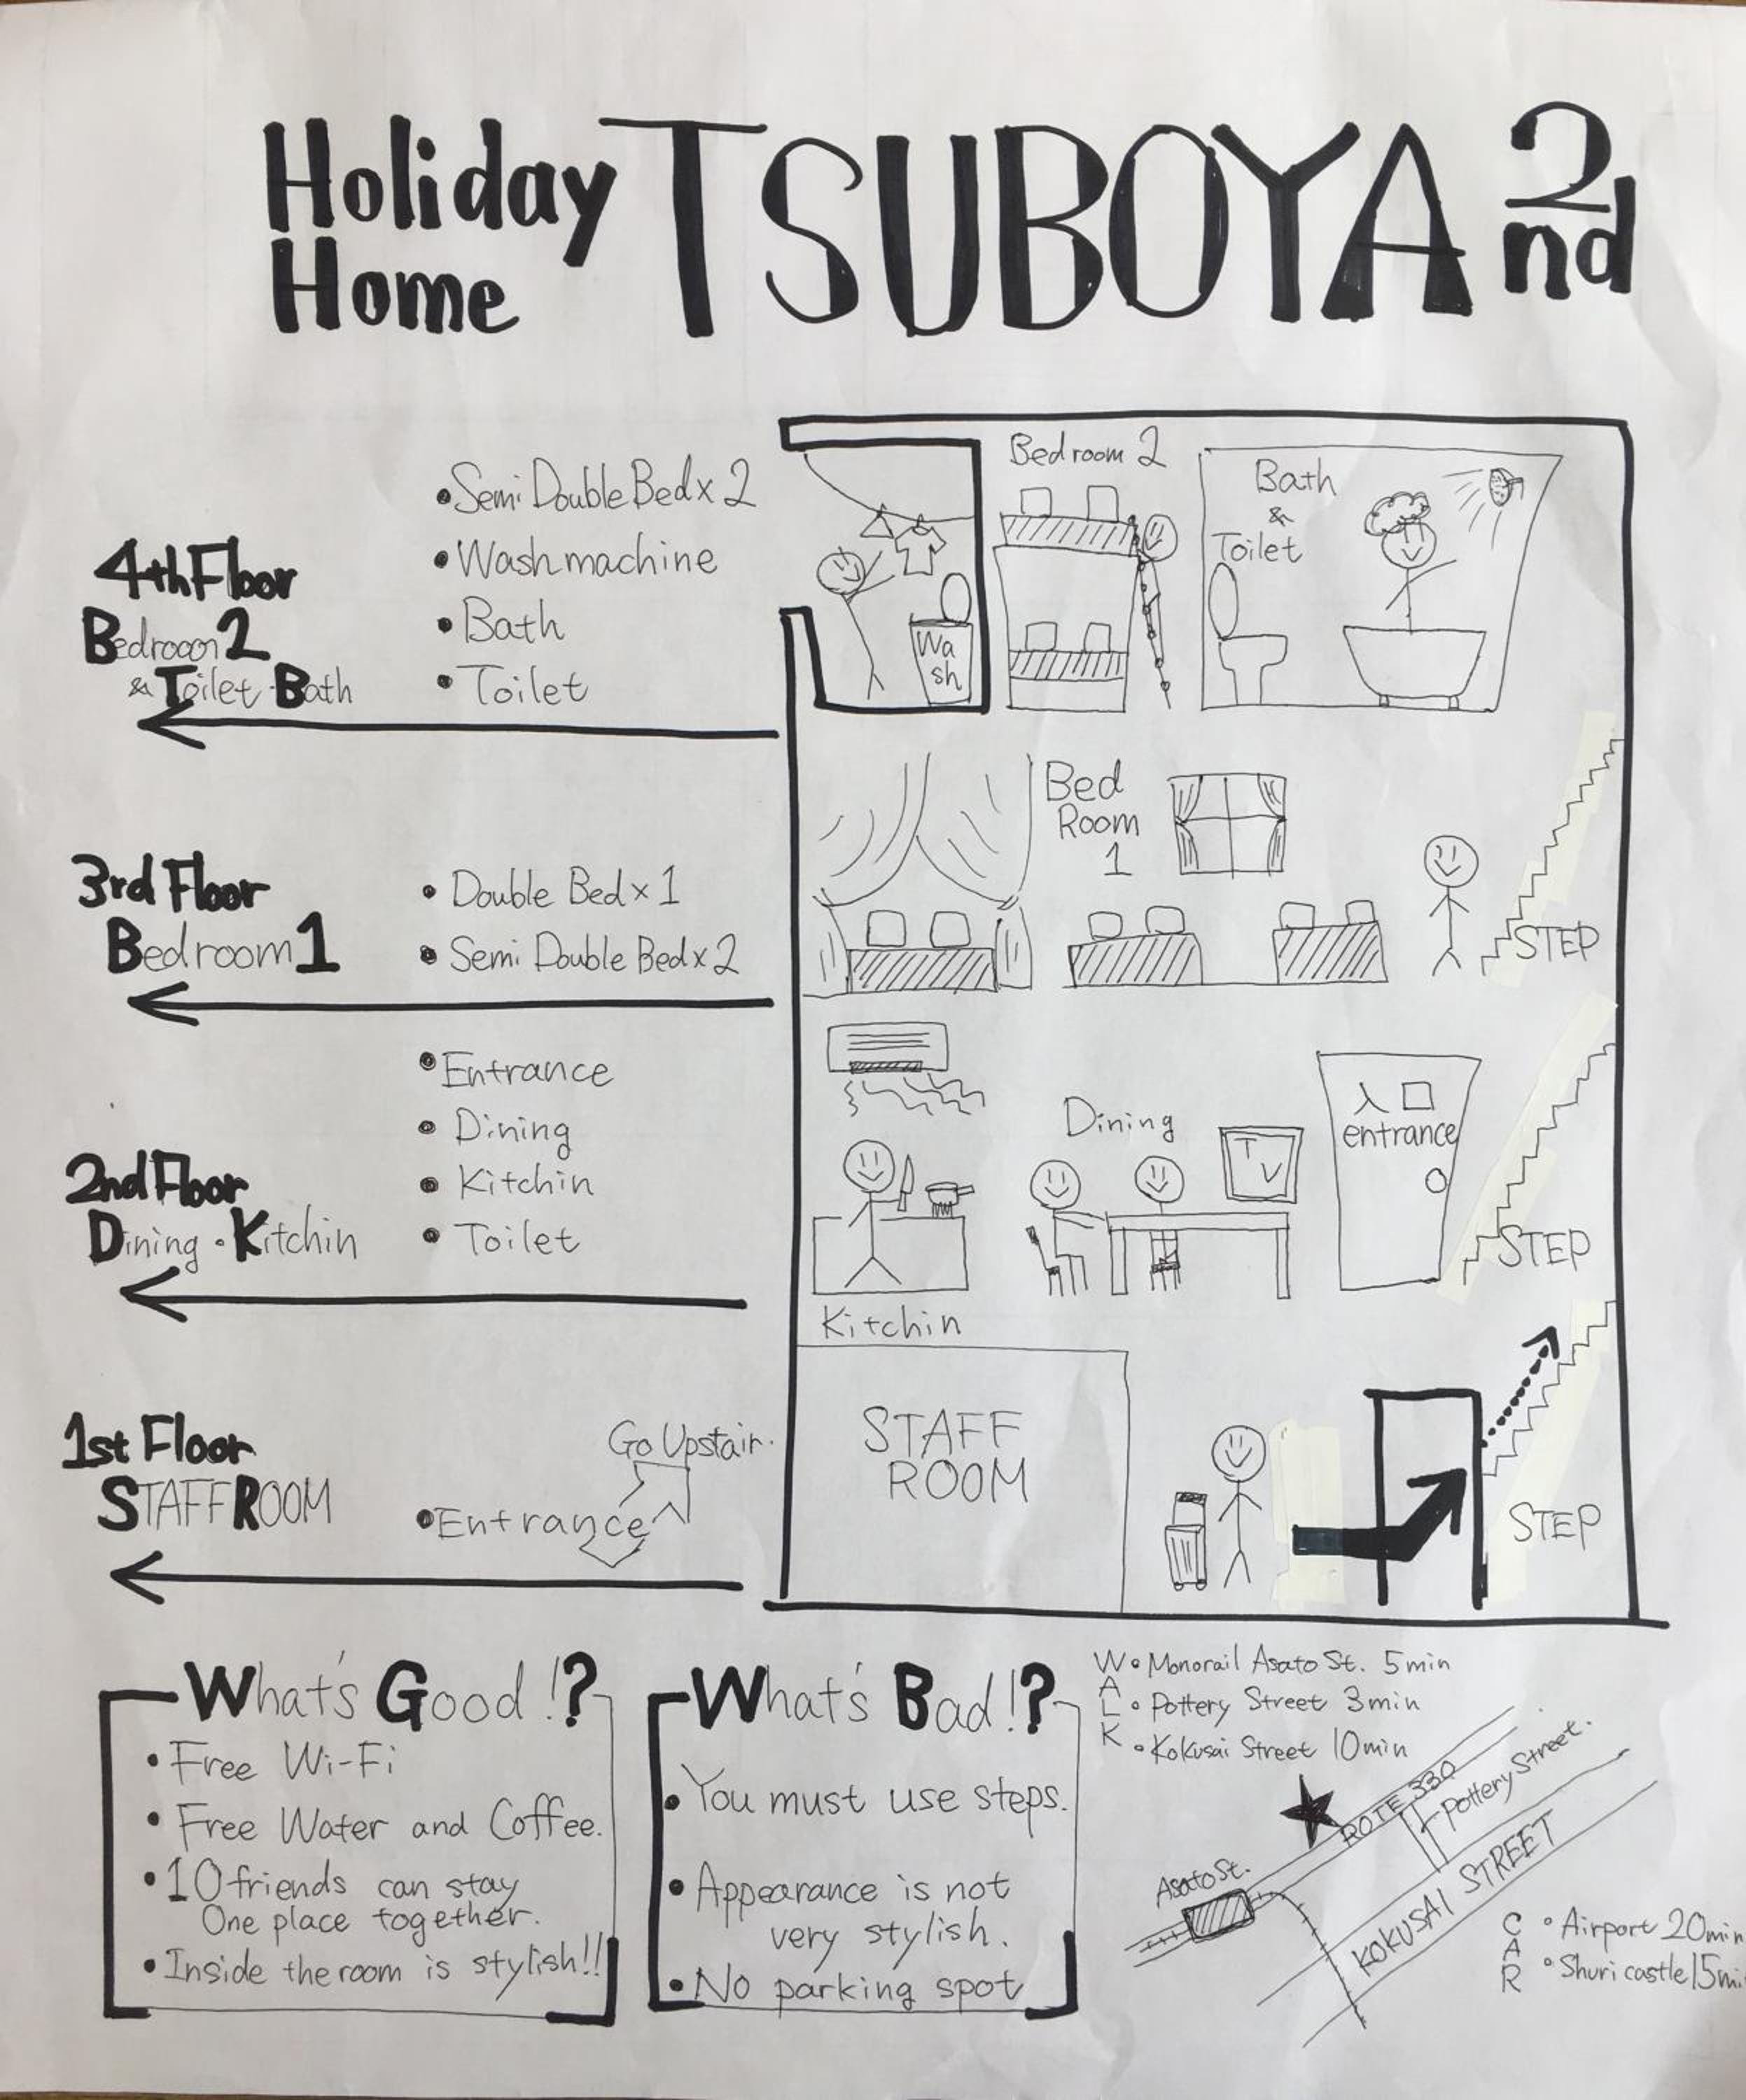 Holiday
Home
TSUBOYA 2nd
4th Floor
Bedroom 2
& Toilet・Bath
• Semi Double Bed x 2
• Wash machine
• Bath
• Toilet
Bedroom 2
Bath
&
Toilet
Wa
sh
3rd Floor
Bedroom 1
• Double Bed x 1
• Semi Double Bed x 2
Bed
Room
1
STEP
2nd Floor
Dining・Kitchin
• Entrance
• Dining
• Kitchin
• Toilet
Dining
TV
入口
entrance
STEP
Kitchin
1st Floor
STAFF ROOM
Go Upstair.
• Entrance
STAFF
ROOM
STEP
What's Good!?
• Free Wi-Fi
• Free Water and Coffee.
• 10 friends can stay
One place together.
• Inside the room is stylish!!
What's Bad!?
• You must use steps.
• Appearance is not
very stylish.
• No parking spot
WALK
• Monorail Asato St. 5min
• Pottery Street 3min
• Kokusai Street 10min
ROTE 330
Pottery Street.
Asato St.
KOKUSAI STREET
CAR
• Airport 20min
• Shuri castle 15mi